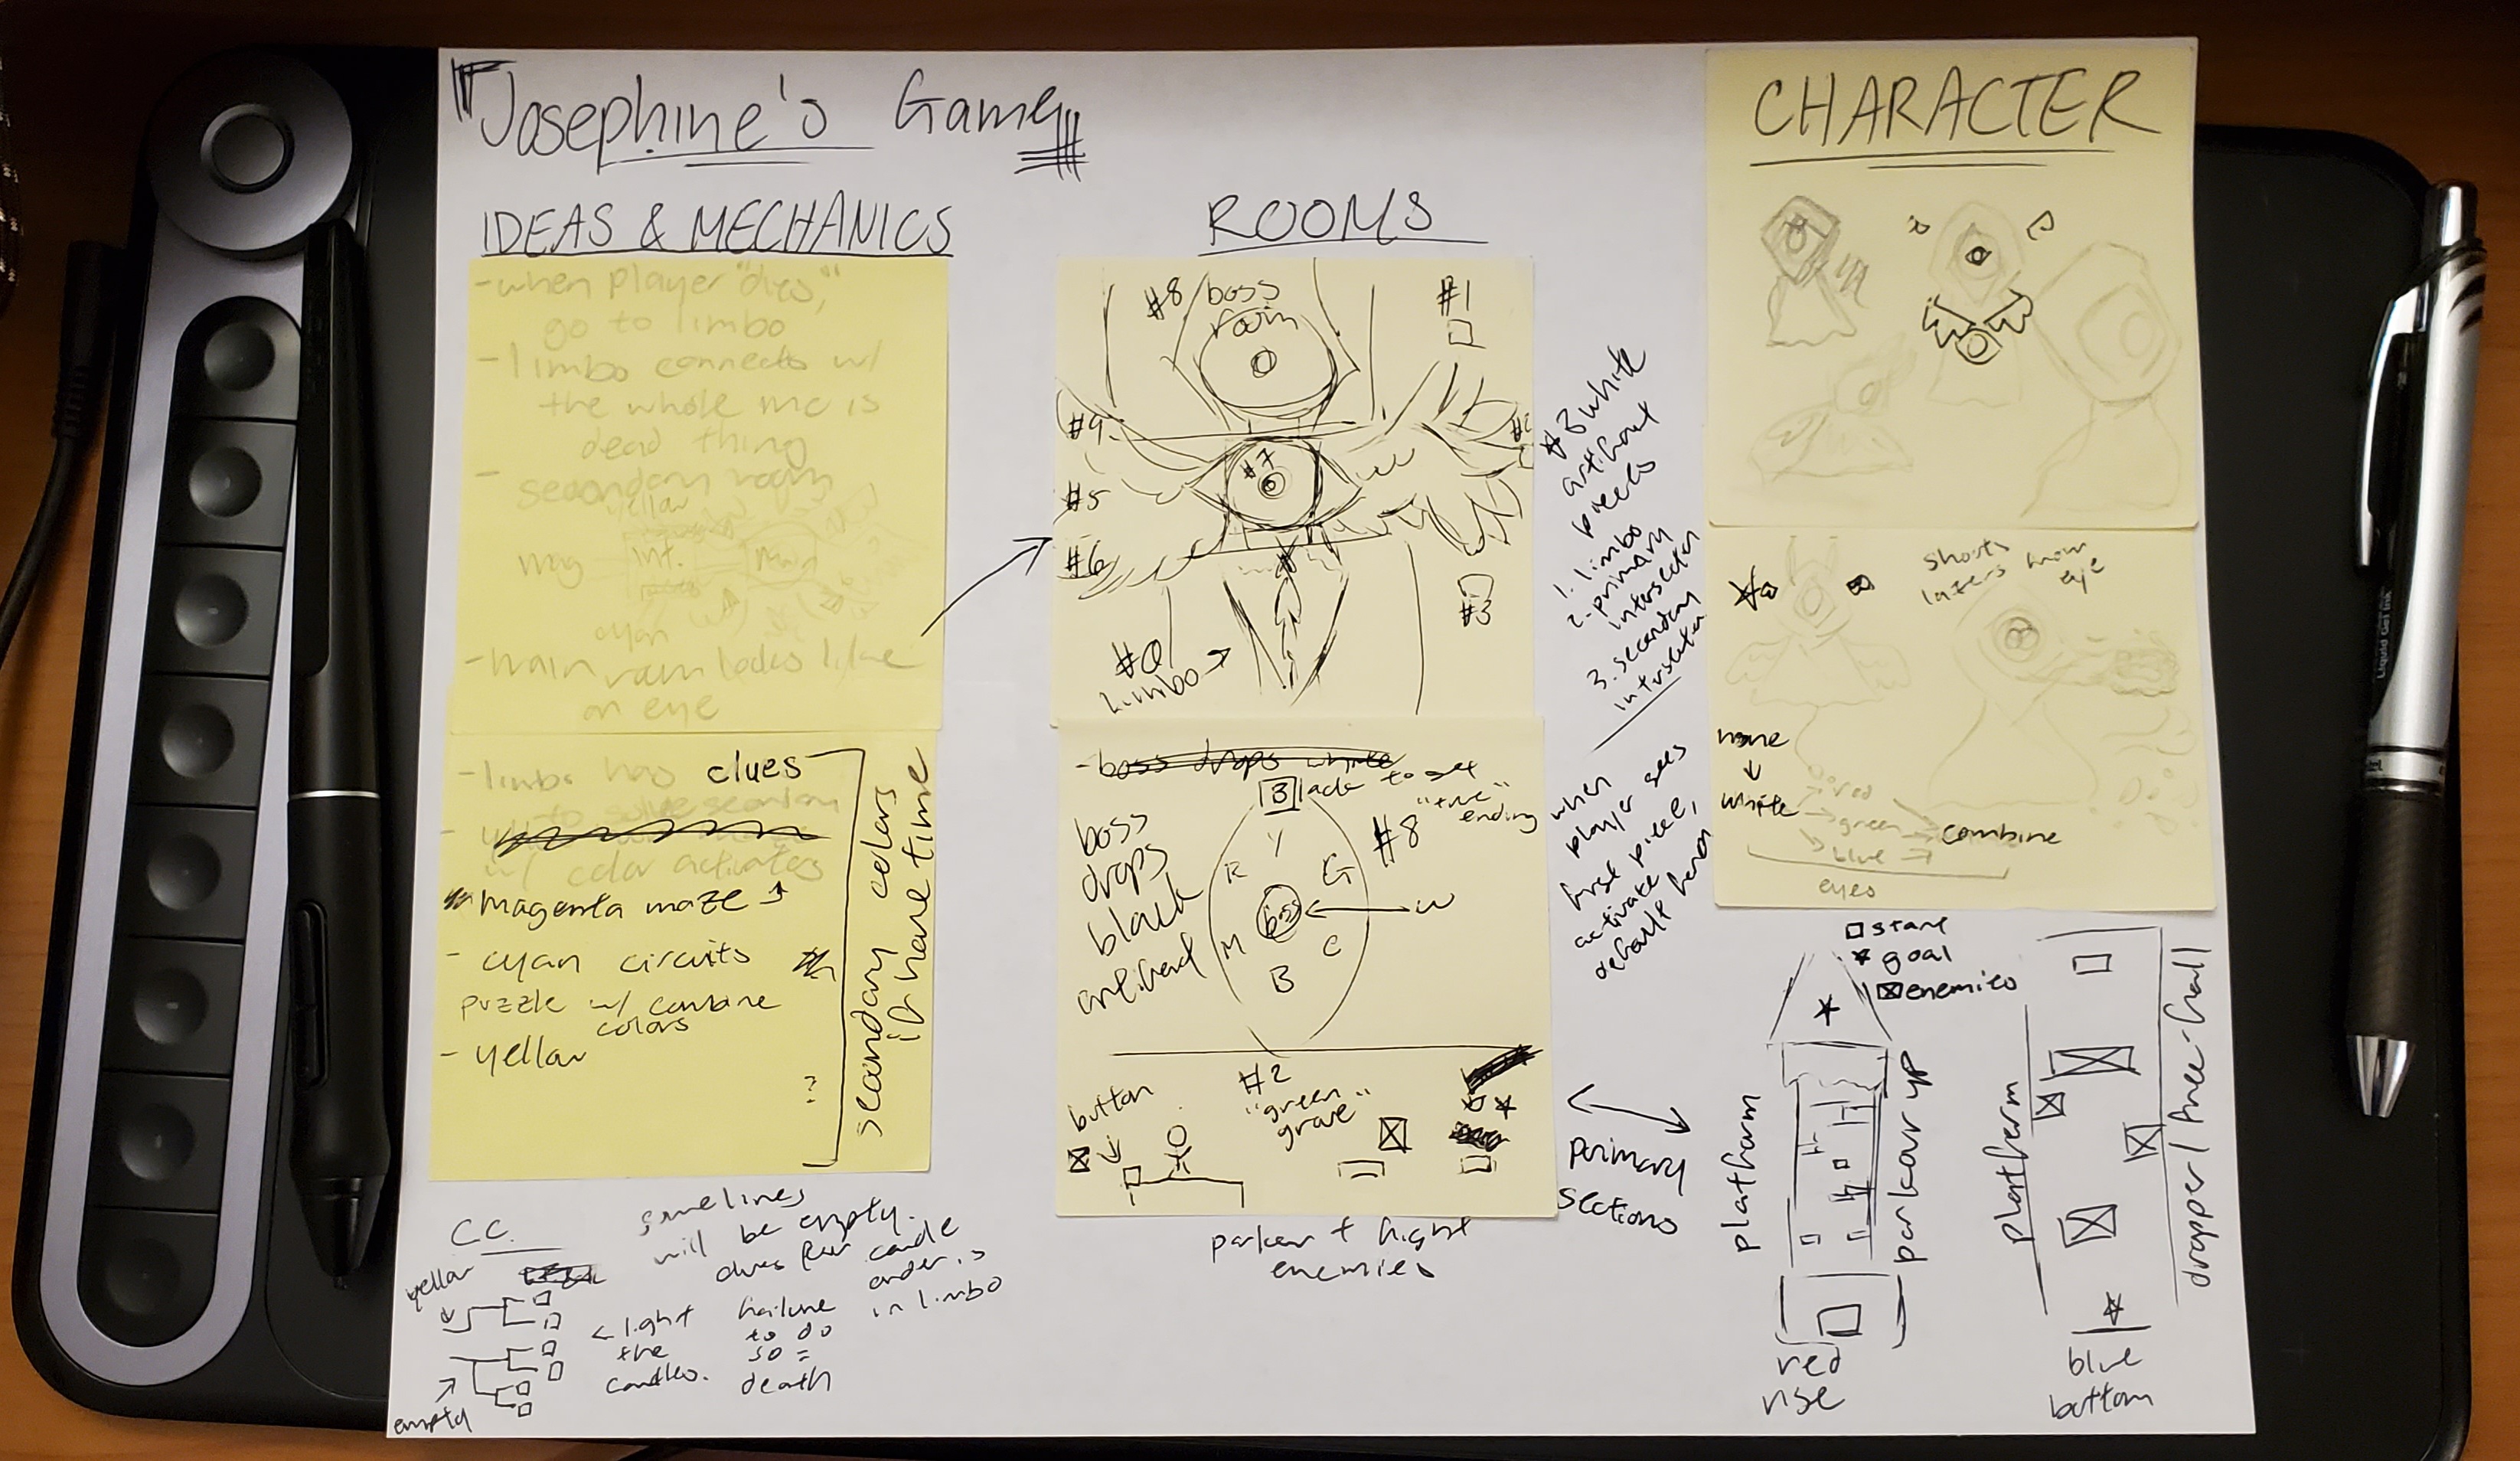 "Josephine's Game"
IDEAS & MECHANICS
- when player "dies,"
go to limbo
- limbo connects w/
the whole mc is
dead thing
- secondary room
yellow
mag
int.
Main
cyan
- main room looks like
an eye
- limbo has clues
to solve secondary
w/ color activates
magenta maze
- cyan circuits
puzzle w/ combine
colors
- yellow
?
secondary colors
if have time
C.C.
yellow
empty
< light
the
candles.
failure
to do
so =
death
some lines
will be empty.
clues for candle
order is
in limbo
ROOMS
#8/boss
room
#1
#9
#7
#5
#6
#3
#0
limbo →
* 3 white
artifact
pieces
1. limbo
2. primary
intersection
3. secondary
intersection
when
player gets
first piece,
activate
default form
- boss drops white
Black to get
"true"
ending
boss
drops
black
artifact
#8
Y
R
G
boss
W
M
C
B
button
#2
"green
grove"
parkour + fight
enemies
primary
sections
CHARACTER
shoots
lasers from
eye
none
↓
white
red
green
blue
combine
eyes
□ start
* goal
☒ enemies
platform
parkour up
red
rise
platform
dropper/free-fall
blue
bottom
Liquid Gel Ink